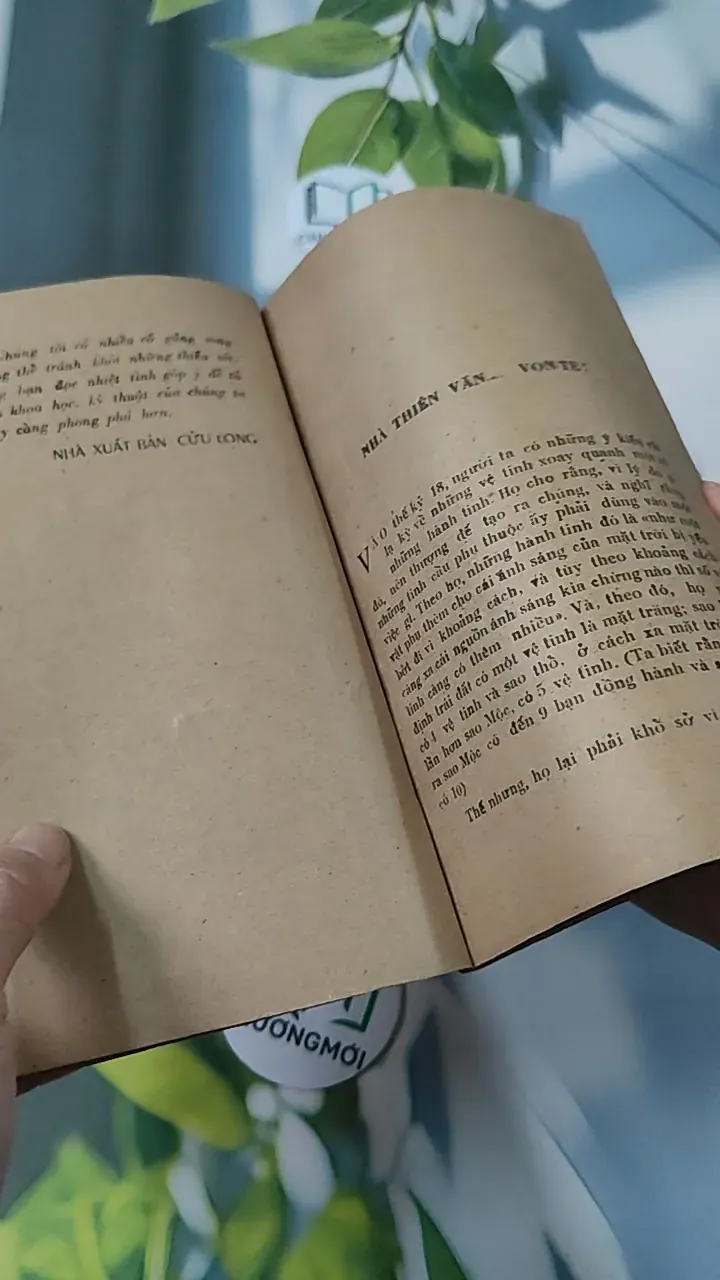 chúng tôi có nhiều cố gắng song
thể tránh khỏi những thiếu sót.
bạn đọc nhiệt tình góp ý để tủ
khoa học, kỹ thuật của chúng ta
càng phong phú hơn.
NHÀ XUẤT BẢN CỬU LONG
NHÀ THIÊN VĂN... VON-TE!
VÀO thế kỷ 18, người ta có những ý kiến rất
lạ kỳ về những vệ tinh xoay quanh một số
những hành tinh. Họ cho rằng, vì lý do gì
đó, nên thượng đế tạo ra chúng, và nghĩ rằng
những tinh cầu phụ thuộc ấy phải dùng vào một
việc gì. Theo họ, những hành tinh đó là «như một
vật phụ thêm cho cái ánh sáng của mặt trời bị yếu
bớt đi vì khoảng cách, và tùy theo khoảng cách
càng xa cái nguồn ánh sáng kia chừng nào thì số vệ
tinh càng có thêm nhiều». Và, theo đó, họ
định trái đất có một vệ tinh là mặt trăng; sao
có 4 vệ tinh và sao thổ, ở cách xa mặt trời
lần hơn sao Mộc, có 5 vệ tinh. (Ta biết rằng
ra sao Mộc có đến 9 bạn đồng hành và
có 10)
Thế nhưng, họ lại phải khổ sở vì
ƯƠNGMỚI